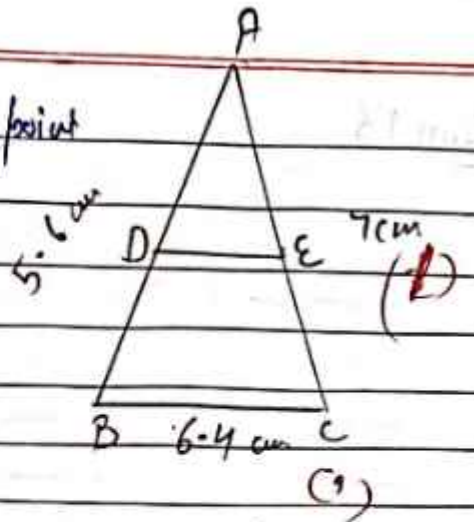 A
point
5.6 cm
D
E
7cm
(1)
B
6.4 cm
C